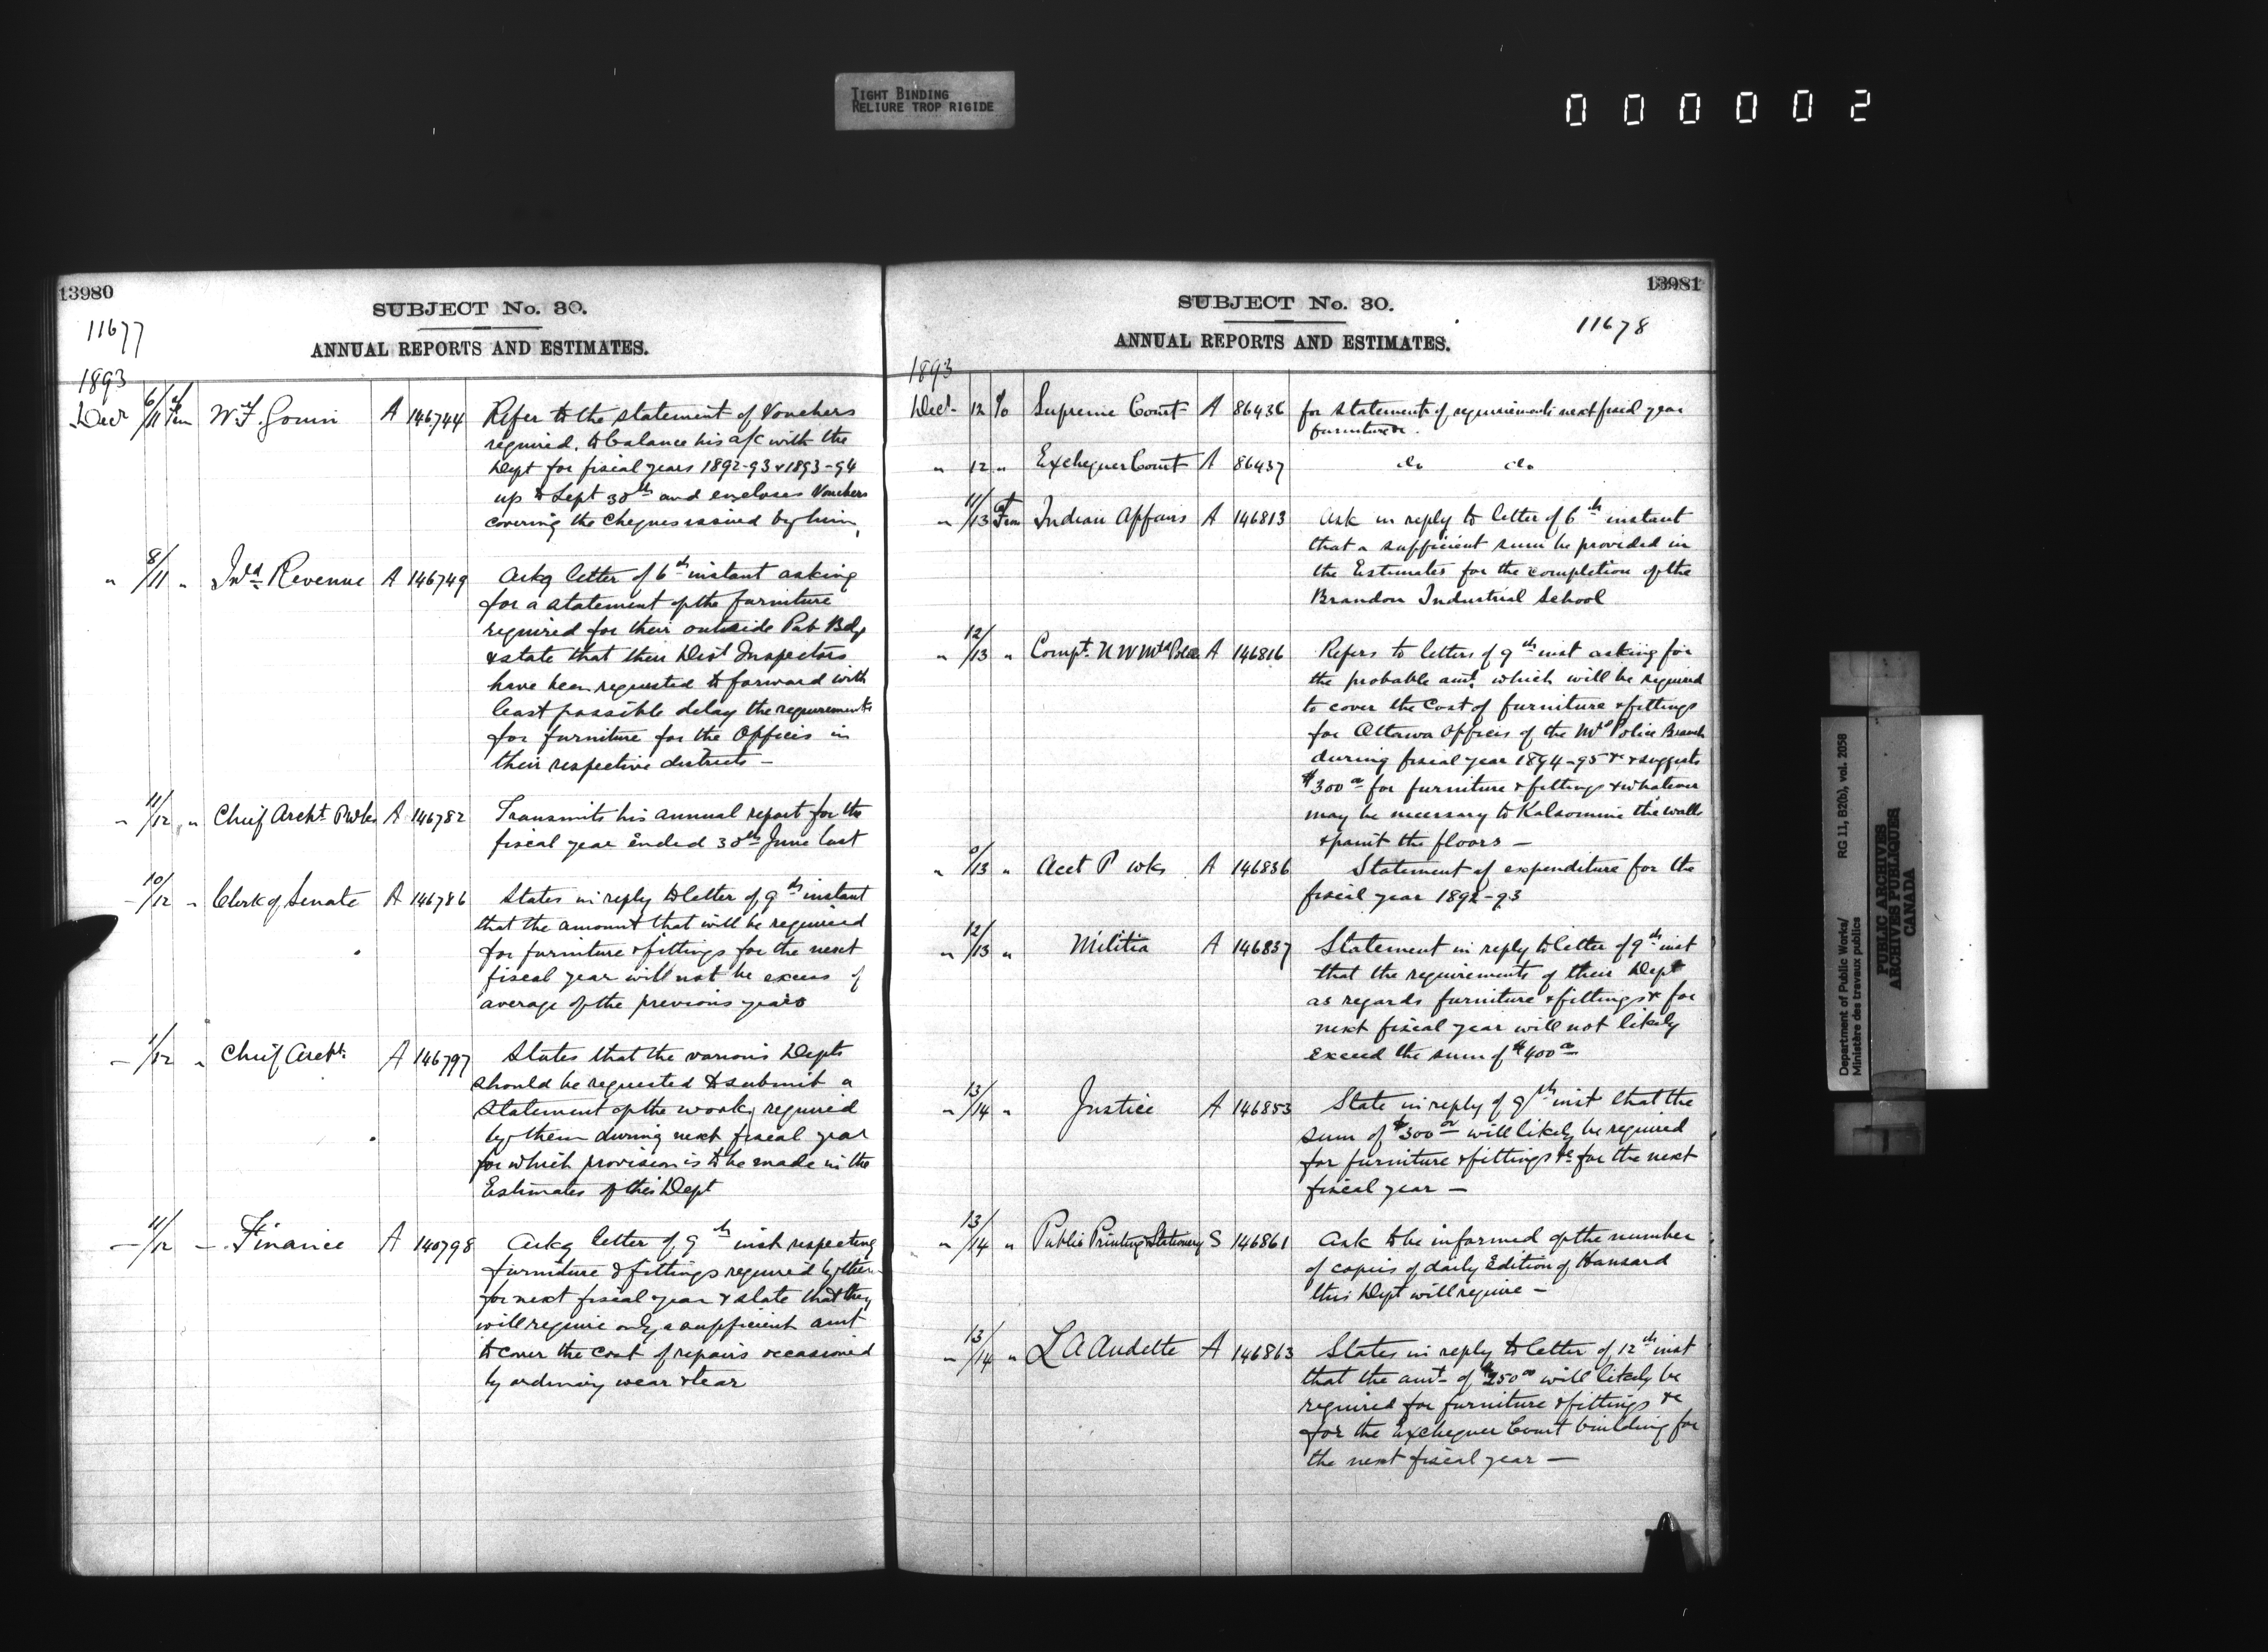 TIGHT BINDING
RELIURE TROP RIGIDE
000002
13980
SUBJECT No. 30.
11677
ANNUAL REPORTS AND ESTIMATES.
1893
Decr 6/11 Fm W. F. Gouin A 146744 Refer to the statement of Vouchers
required, to balance his a/c with the
Dept for fiscal years 1892-93 & 1893-94
up to Sept 30th and encloses Vouchers
covering the Cheques issued by him,
" 8/11 " Inld Revenue A 146749 Ackg letter of 6th instant asking
for a statement of the furniture
required for their outside Pub Bdgs
& state that their Dist Inspectors
have been requested to forward with
least possible delay the requirements
for furniture for the Offices in
their respective districts —
" 11/12 " Chief Archt P Wks A 146782 Transmits his annual report for the
fiscal year ended 30th June last
" 10/12 " Clerk of Senate A 146786 States in reply to letter of 9th instant
that the amount that will be required
for furniture & fittings for the next
fiscal year will not be excess of
average of the previous years
— 1/12 " Chief Archt. A 146797 States that the various Depts
should be requested to submit a
statement of the work required
by them during next fiscal year
for which provision is to be made in the
Estimates of this Dept
— 11/12 — Finance A 140798 Ackg letter of 9th inst respecting
furniture & fittings required by them
for next fiscal year & state that they
will require only a sufficient amt
to cover the cost of repairs occasioned
by ordinary wear & tear
13981
SUBJECT No. 30.
11678
ANNUAL REPORTS AND ESTIMATES.
1893
Decr 12 To Supreme Court A 86436 for statement of requirements next fiscal year
furniture &c.
" 12 " Exchequer Court A 86437 do do
" 11/13 Fm Indian Affairs A 146813 Ask in reply to letter of 6th instant
that a sufficient sum be provided in
the Estimates for the completion of the
Brandon Industrial School
" 12/13 " Compt. N W Mtd Police A 146816 Refers to letters of 9th inst asking for
the probable amt. which will be required
to cover the Cost of furniture & fittings
for Ottawa Offices of the Mtd Police Branch
during fiscal year 1894-95 &c & suggests
$300 00 for furniture & fittings & whatever
may be necessary to Kalsomine the walls
& paint the floors —
" 0/13 " Acct P Wks A 146836 Statement of expenditure for the
fiscal year 1892-93
" 12/13 " Militia A 146837 Statement in reply to letter of 9th inst
that the requirements of their Dept
as regards furniture & fittings &c for
next fiscal year will not likely
exceed the sum of $400 00
" 13/14 " Justice A 146853 State in reply of 9th inst that the
sum of $300 00 will likely be required
for furniture & fittings &c for the next
fiscal year —
" 13/14 " Public Printing & Stationery S 146861 Ask to be informed of the number
of copies of daily Edition of Hansard
this Dept will require —
" 13/14 " L A Audette A 146863 States in reply to letter of 12th inst
that the amt. of $250 00 will likely be
required for furniture & fittings &c
for the Exchequer Court building for
the next fiscal year —
Department of Public Works/
Ministère des travaux publics
RG 11, B2(b), vol. 2058
PUBLIC ARCHIVES
ARCHIVES PUBLIQUES
CANADA